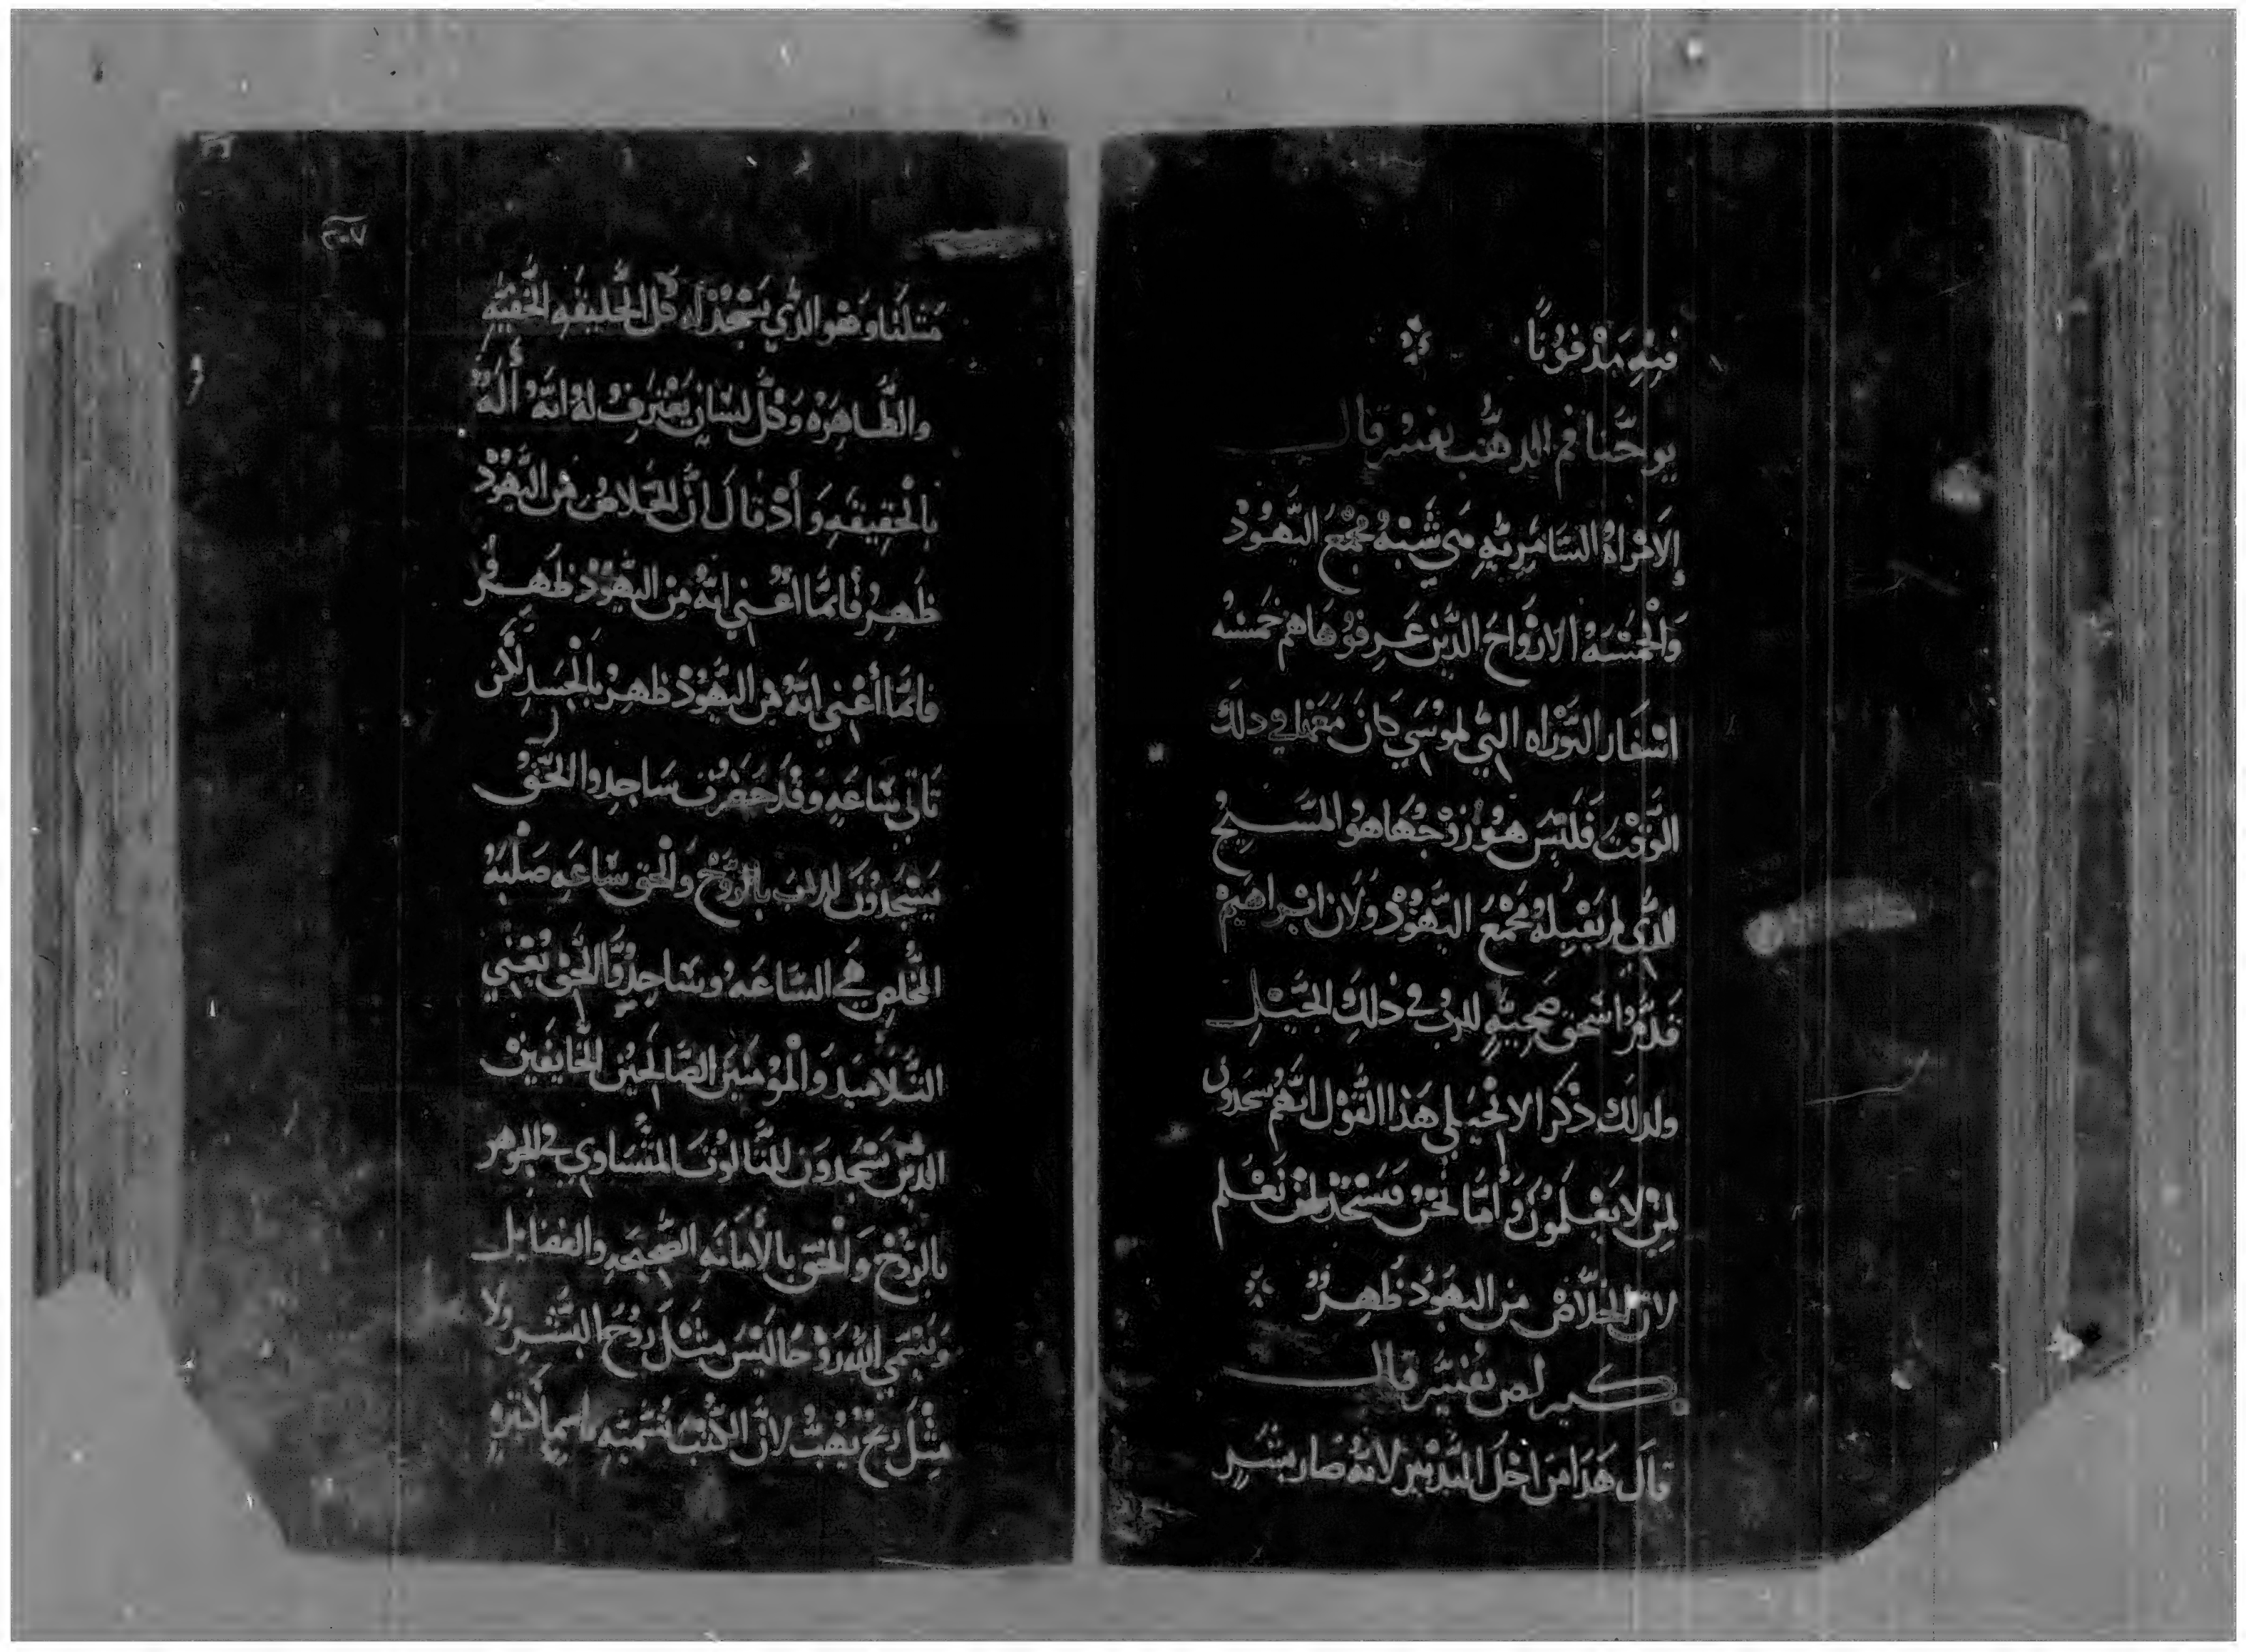 فِيْهِ مَدْفُوْنًا
يوحَّنا فم الدهَّب يفسر قال
اِلاَمْرَاهُ السَّامَرِيَّهِ هَي شَبْهُ مَجْمَعَ اليَّهُوُدْ
وَالْخَمْسَهُ الازْوَاجَ الدَّيْن عَرِفوُهَا هم خَمسْه
اسْفَار التوْرَاه التِّي لموْسَي كَانَ مَعَهَا في دلكَ
الوَقْتَ فَلَيْسَ هُوَ زَوْجُهَا هوُ المسَيِحُ
الدَّي لم يَقْبِلهُ مَجْمَعَ اليَّهوُدْ وَلان ابْراهَيمْ
قَدَّم وَاسْحَق ضَحِيَّهٍ للربُ في ذلِكَ الجَبَلِ
ولدلَك ذْكَرَ الانْجَيْلي هَذا القَوْل انَهُم يسَجدوُن
لِمنْ لا يَعْلَموُنَ وَأمَّا نَحْنُ فنَسْجدَ لمنْ نَعْلَم
لانَّ الخَلاصْ مِن اليَهوُدُ ظَهِرٌ
كيرلص يُفسِّر قال
قالَ هَدَا مَن اجْلَ التدَّبيْر لانَهُ صَار بشَرٍ
٢٠٧
مَثلَنا وَهُو الدَّي يَسْجُدْ لَه كُل الخَليقَهِ الخَفيَّهِ
والظَّاهِرَهْ وَكُلَّ لسَانٍ يَعْتَرِفُ لهُ انَهُ الَهٌ
بِالْحَقِيقَهِ وَأدْ قالَ انَّ الخَلاصُ مْن اليَّهوُدْ
ظَهِرُ فأنمَّا اعْني انَهُ مِن اليَّهوُدْ ظَهِرُ
فَانمَّا أعْني انَهُ مِن اليَّهوُدْ ظهِرُ بالْجَسَدِ لَكن
تَاتي سَّاعَهٍ وَقْدَ حَضَرتَ سَاجِدوا الحَقْ
يَسْجَدُوْنَ للربَ بالرُّوْحْ وَالحَق سَّاعَهِ صَلْبَهُ
المخَّلصِ هَي السَّاعَهُ وسَاجِدُوا الحَّق يَعْني
التَّلامَيدَ وَالْموُمَنينَ الصَّالحَيْن الخَايفَينْ
الديْن يَسْجدوَن للتَّالوُت المتْسَاوي في الجوهر
بالرُوْحْ وَالْحَقِ بالأَمَانَهِ الصَّحِيحَهِ والفضَايل
وَيُسَّمي اللهَ رَوْحًا لَيْسَ مثْلَ رُوْحَ البَشَرِ ولا
مِثْلَ ريْحَ يَهُبْ لانَّ الكُتْبَ تُسَّميَّهِ باسِما كَثيَرهٍ